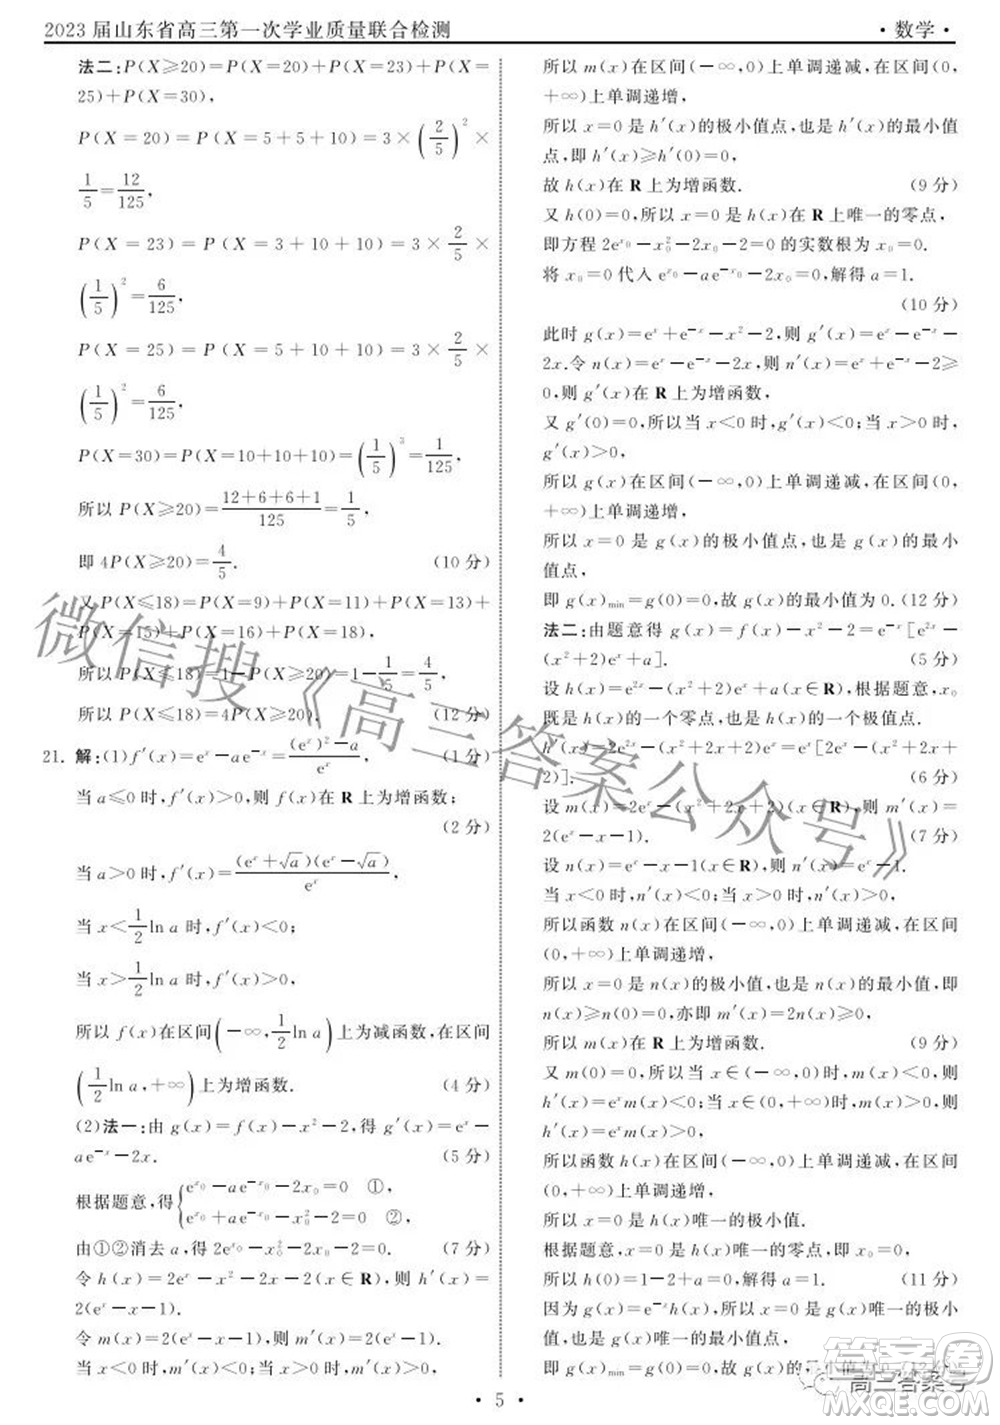 2023 届山东省高三第一次学业质量联合检测
·数学·
法二:P(X≥20)=P(X=20)+P(X=23)+P(X=
25)+P(X=30),
P(X=20)=P(X=5+5+10)=3×(2/5)²×
1/5=12/125,
P(X=23)=P(X=3+10+10)=3×2/5×
(1/5)²=6/125,
P(X=25)=P(X=5+10+10)=3×2/5×
(1/5)²=6/125,
P(X=30)=P(X=10+10+10)=(1/5)³=1/125,
所以 P(X≥20)=(12+6+6+1)/125=1/5,
即 4P(X≥20)=4/5. (10 分)
又 P(X≤18)=P(X=9)+P(X=11)+P(X=13)+
P(X=15)+P(X=16)+P(X=18),
所以 P(X≤18)=1-P(X≥20)=1-1/5=4/5,
所以 P(X≤18)=4P(X≥20). (12 分)
21. 解:(1)f′(x)=eˣ-ae⁻ˣ=((eˣ)²-a)/eˣ, (1 分)
当 a≤0 时,f′(x)>0,则 f(x)在 R 上为增函数;
(2 分)
当 a>0 时,f′(x)=(eˣ+√a)(eˣ-√a)/eˣ,
当 x<1/2 ln a 时,f′(x)<0;
当 x>1/2 ln a 时,f′(x)>0,
所以 f(x)在区间(-∞,1/2 ln a)上为减函数,在区间
(1/2 ln a,+∞)上为增函数. (4 分)
(2)法一:由 g(x)=f(x)-x²-2,得 g′(x)=eˣ-
ae⁻ˣ-2x. (5 分)
根据题意,得{e^x₀-ae^-x₀-2x₀=0 ①,
e^x₀+ae^-x₀-x₀²-2=0 ②,
由①②消去 a,得 2e^x₀-x₀²-2x₀-2=0. (7 分)
令 h(x)=2eˣ-x²-2x-2(x∈R),则 h′(x)=
2(eˣ-x-1).
令 m(x)=eˣ-x-1,则 m′(x)=eˣ-1.
当 x<0 时,m′(x)<0;当 x>0 时,m′(x)>0,
所以 m(x)在区间(-∞,0)上单调递减,在区间(0,
+∞)上单调递增,
所以 x=0 是 h′(x)的极小值点,也是 h′(x)的最小值
点,即 h′(x)≥h′(0)=0,
故 h(x)在 R 上为增函数. (9 分)
又 h(0)=0,所以 x=0 是 h(x)在 R 上唯一的零点,
即方程 2e^x₀-x₀²-2x₀-2=0 的实数根为 x₀=0.
将 x₀=0 代入 e^x₀-ae^-x₀-2x₀=0,解得 a=1.
(10 分)
此时 g(x)=eˣ+e⁻ˣ-x²-2,则 g′(x)=eˣ-e⁻ˣ-
2x.令 n(x)=eˣ-e⁻ˣ-2x,则 n′(x)=eˣ+e⁻ˣ-2≥
0,则 g′(x)在 R 上为增函数.
又 g′(0)=0,所以当 x<0 时,g′(x)<0;当 x>0 时,
g′(x)>0,
所以 g(x)在区间(-∞,0)上单调递减,在区间(0,
+∞)上单调递增,
所以 x=0 是 g(x)的极小值点,也是 g(x)的最小
值点,
即 g(x)min=g(0)=0,故 g(x)的最小值为 0.(12 分)
法二:由题意得 g(x)=f(x)-x²-2=e⁻ˣ[e²ˣ-
(x²+2)eˣ+a]. (5 分)
设 h(x)=e²ˣ-(x²+2)eˣ+a(x∈R),根据题意,x₀
既是 h(x)的一个零点,也是 h(x)的一个极小值点.
h′(x)=2e²ˣ-(x²+2x+2)eˣ=eˣ[2eˣ-(x²+2x+
2)]. (6 分)
设 m(x)=2eˣ-(x²+2x+2)(x∈R),则 m′(x)=
2(eˣ-x-1). (7 分)
设 n(x)=eˣ-x-1(x∈R),则 n′(x)=eˣ-1.
当 x<0 时,n′(x)<0;当 x>0 时,n′(x)>0,
所以函数 n(x)在区间(-∞,0)上单调递减,在区间
(0,+∞)上单调递增,
所以 x=0 是 n(x)的极小值点,也是最小值点,
即 n(x)≥n(0)=0,亦即 m′(x)=2n(x)≥0,
所以 m(x)在 R 上为增函数. (9 分)
又 m(0)=0,所以当 x∈(-∞,0)时,m(x)<0,
h′(x)=eˣm(x)<0;当 x∈(0,+∞)时,m(x)>0,
h′(x)=eˣm(x)>0,
所以函数 h(x)在区间(-∞,0)上单调递减,在区间
(0,+∞)上单调递增,
所以 x=0 是 h(x)唯一的极小值点.
根据题意,x=0 是 h(x)唯一的零点,即 x₀=0,
所以 h(0)=1-2+a=0,解得 a=1. (11 分)
因为 g(x)=e⁻ˣh(x),所以 x=0 是 g(x)唯一的极小
值点,也是唯一的最小值点,
即 g(x)≥g(0)=0,故 g(x)的
·5·
微信搜《高三答案公众号》
答案圈
高三答案号